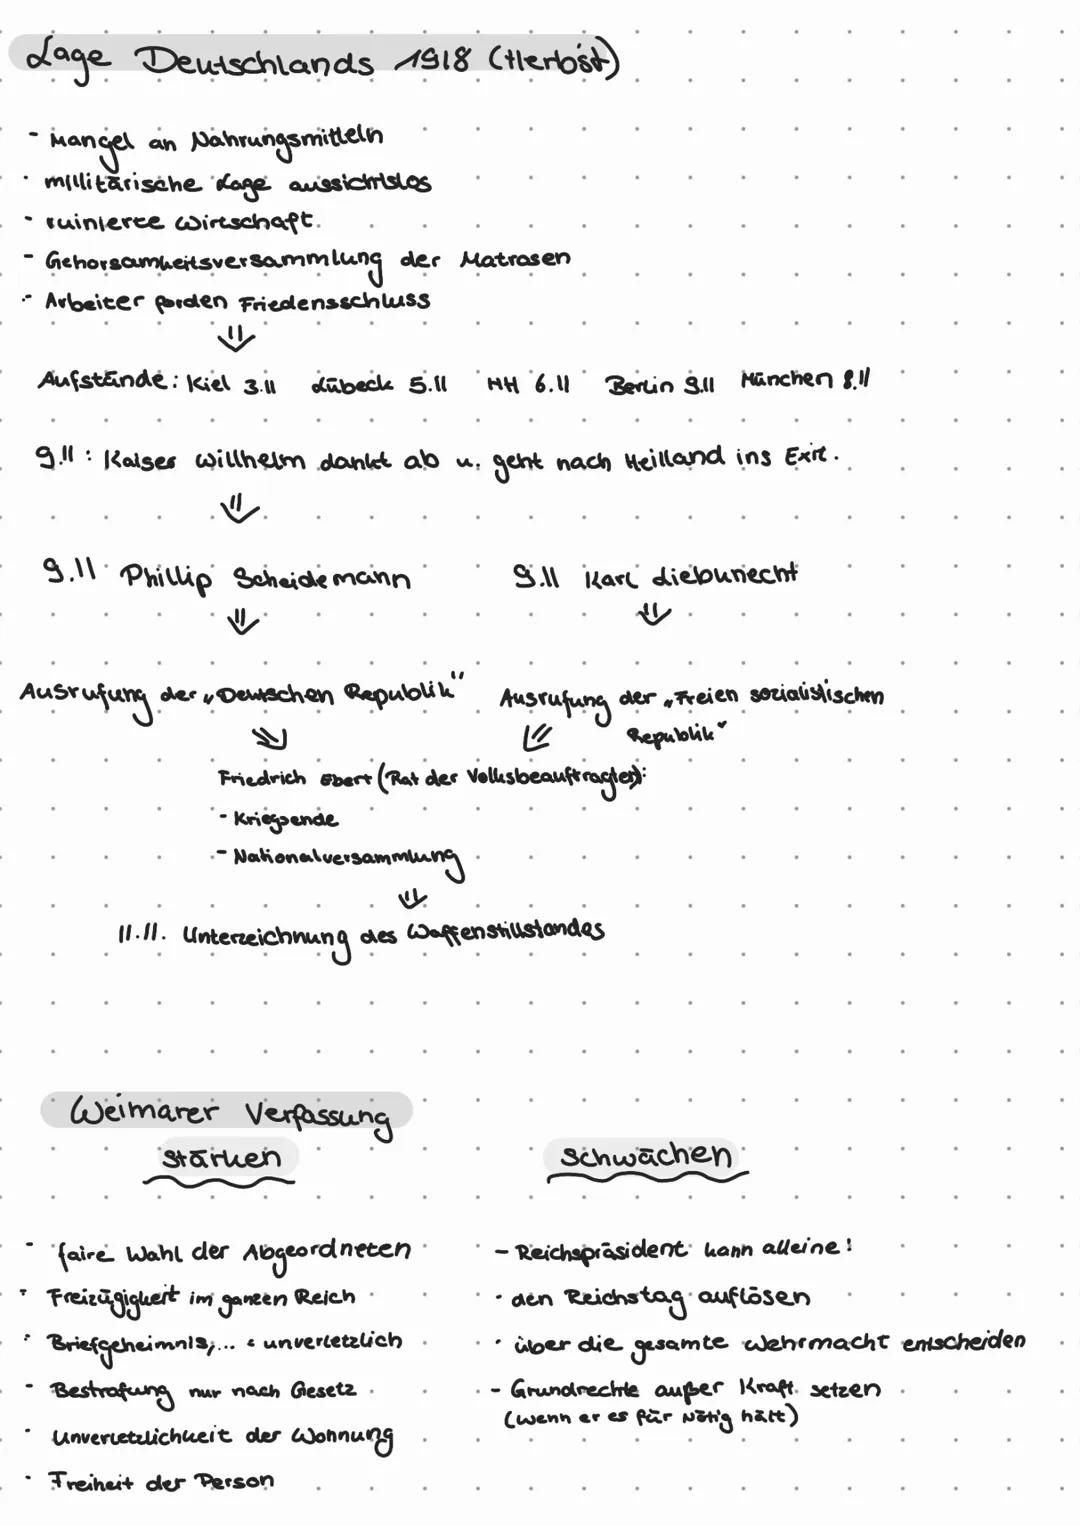 Lage Deutschlands 1918 (Herbst)
- Mangel an Nahrungsmitteln
- militärische Lage aussichtslos
- ruinierte Wirtschaft
- Gehorsamkeitsversammlung der Matrosen
- Arbeiter forden Friedensschluss
Aufstände: Kiel 3.11 Lübeck 5.11 HH 6.11 Berlin 9.11 München 8.11
9.11: Kaiser Willhelm dankt ab u. geht nach Heilland ins Exit.
9.11 Phillip Scheidemann 9.11 Karl Liebknecht
Ausrufung der „Deutschen Republik" Ausrufung der „Freien sozialistischen
Republik"
Friedrich Ebert (Rat der Volksbeauftragten):
- Kriegsende
- Nationalversammlung
11.11. Unterzeichnung des Waffenstillstandes
Weimarer Verfassung
Stärken Schwächen
- faire Wahl der Abgeordneten - Reichspräsident kann alleine:
- Freizügigkeit im ganzen Reich · den Reichstag auflösen
- Briefgeheimnis,... : unverletzlich · über die gesamte Wehrmacht entscheiden
- Bestrafung nur nach Gesetz - Grundrechte außer Kraft setzen
(wenn er es für nötig hält)
- Unverletzlichkeit der Wohnung
- Freiheit der Person